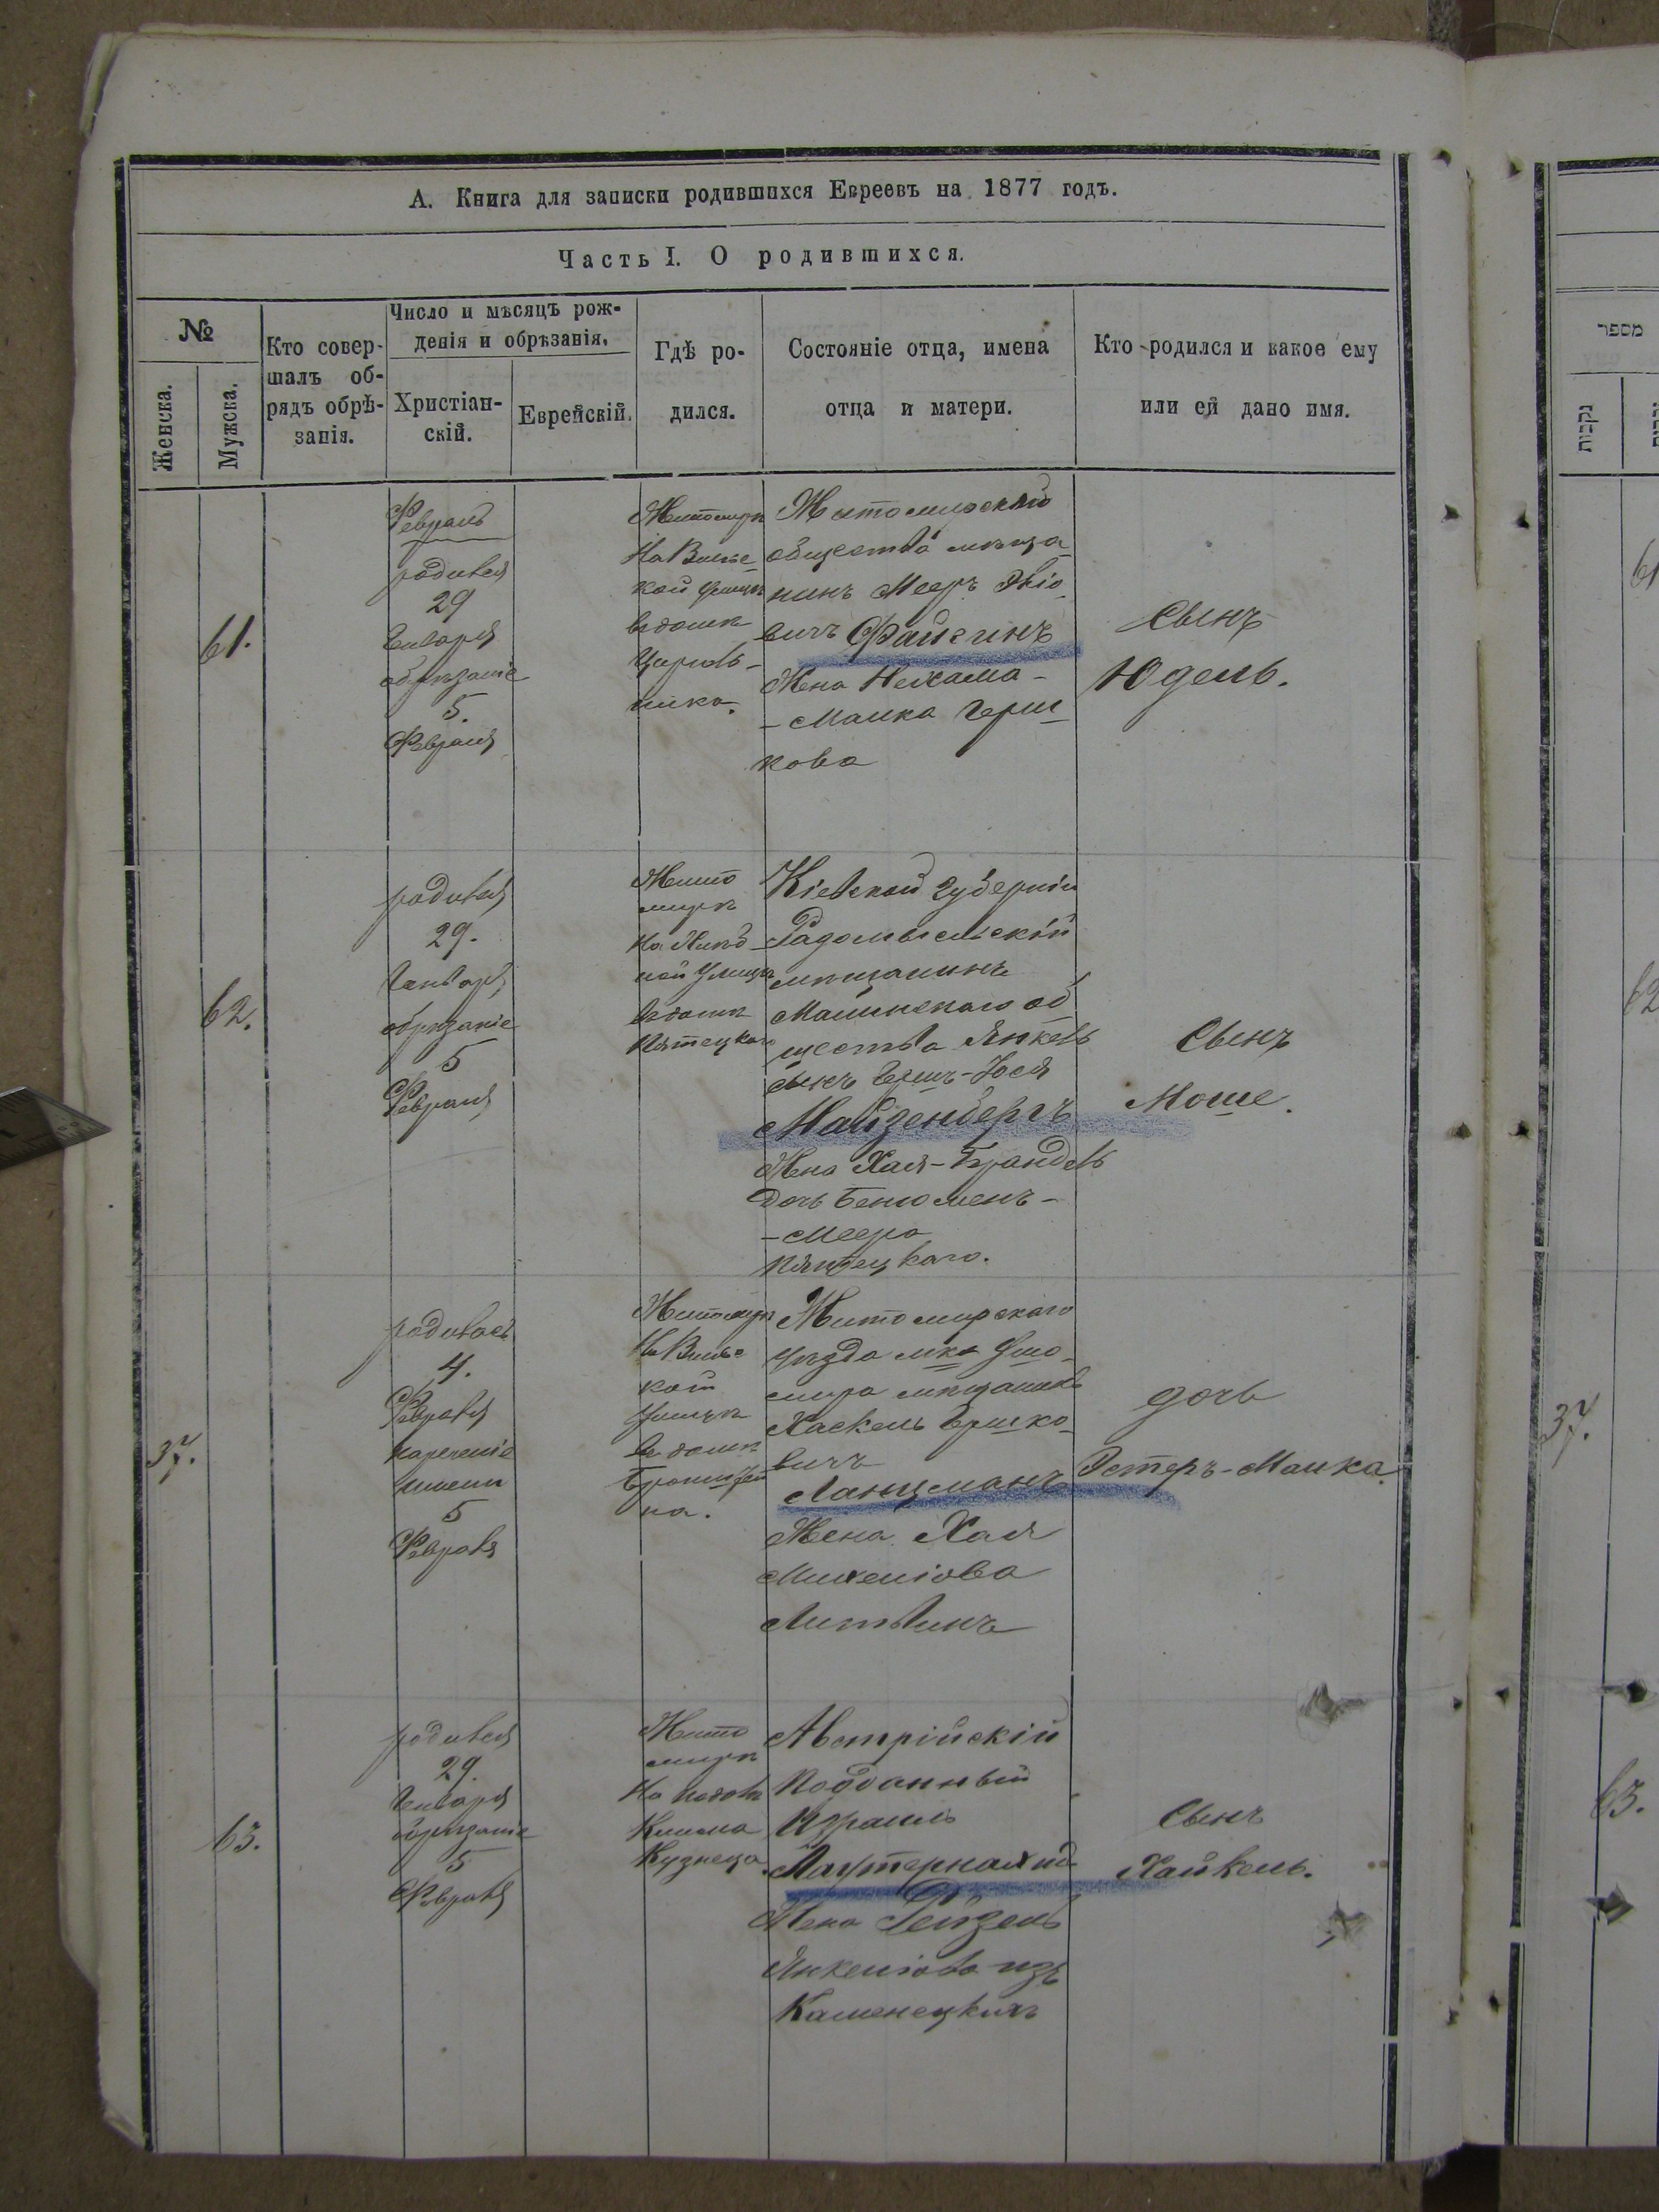 А. Книга для записки родившихся Евреевъ на 1877 годъ.
Часть I. О родившихся.
№
Женска.
Мужска.
Кто совер-
шалъ об-
рядъ обрѣ-
занія.
Число и мѣсяцъ рож-
денія и обрѣзанія.
Христіан-
скій.
Еврейскій.
Гдѣ ро-
дился.
Состояніе отца, имена
отца и матери.
Кто родился и какое ему
или ей дано имя.
61.
Февраль
родився
29
Января
обрѣзаніе
5.
Февраля
Житомирѣ
На Вильс-
кой улицѣ
въ домѣ
ника.
Житомирскаго
общества мѣща-
нинъ Мееръ
вичъ Файгинъ
Жена Нехама-
-Малка Герш-
кова
Сынъ
Юдель.
62.
родився
29.
Января
обрѣзаніе
5
Февраля
Жито
мирѣ
ной улицѣ
въ домѣ
Пятецкаго
Кіевской губерніи
Радомысельскій
мѣщанинъ
Малинскаго об
щества Янкель
сынъ Гершъ-Іося
Майзенбергъ
Жена Хая-Брандль
дочь Бенюменъ-
-Меера
Пятецкаго.
Сынъ
Моше.
37.
родилась
4.
Февраля
нареченіе
имени
5
Февраля
Житомирѣ
На Вильс
кой
улицѣ
въ домѣ
на.
Житомирскаго
уѣзда мка Ушо-
мира мѣщанинъ
Хаскель Гершко-
вичъ
Ланцманъ
Жена Хая
Михеліова
Литвинъ
дочь
Эстеръ-Малка
63.
родився
29.
Января
обрѣзаніе
5
Февраля
Жито
мирѣ
На подолѣ
Кузнеца.
Австрійскій
подданный
Израиль
Жена Рейзель
Янкеліова изъ
Каменецкихъ
Сынъ
Хайкель.
מספר
נקבות
61
62
37.
63.